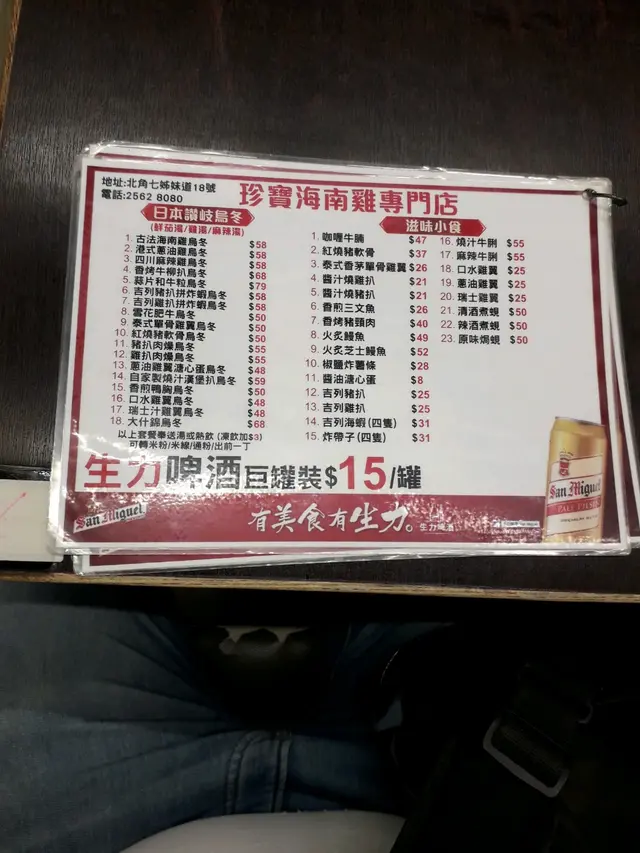 地址:北角七姊妹道18號
電話:2562 8080
珍寶海南雞專門店
日本讚岐烏冬
(鮮茄湯/雞湯/麻辣湯)
1. 古法海南雞烏冬 $58
2. 港式蔥油雞烏冬 $58
3. 四川麻辣雞烏冬 $58
4. 香烤牛柳扒烏冬 $68
5. 蒜片和牛粒烏冬 $79
6. 吉列豬扒拼炸蝦烏冬 $58
7. 吉列雞扒拼炸蝦烏冬 $58
8. 雪花肥牛烏冬 $50
9. 泰式單骨雞翼烏冬 $50
10. 紅燒豬軟骨烏冬 $50
11. 豬扒肉燥烏冬 $55
12. 雞扒肉燥烏冬 $55
13. 蔥油雞翼溏心蛋烏冬 $48
14. 自家製燒汁漢堡扒烏冬 $59
15. 香煎鴨胸烏冬 $50
16. 口水雞翼烏冬 $48
17. 瑞士汁雞翼烏冬 $48
18. 大什錦烏冬 $68
以上套餐奉送湯或熱飲 (凍飲加$3)
可轉米粉/米線/通粉/出前一丁
滋味小食
1. 咖喱牛腩 $47
2. 紅燒豬軟骨 $37
3. 泰式香茅單骨雞翼 $26
4. 醬汁燒雞扒 $21
5. 醬汁燒豬扒 $21
6. 香煎三文魚 $26
7. 香烤豬頸肉 $40
8. 火炙鰻魚 $49
9. 火炙芝士鰻魚 $52
10. 椒鹽炸薯條 $28
11. 醬油溏心蛋 $8
12. 吉列豬扒 $25
13. 吉列雞扒 $25
14. 吉列海蝦 (四隻) $31
15. 炸帶子 (四隻) $31
16. 燒汁牛脷 $55
17. 麻辣牛脷 $55
18. 口水雞翼 $25
19. 蔥油雞翼 $25
20. 瑞士雞翼 $25
21. 清酒煮蜆 $50
22. 辣酒煮蜆 $50
23. 原味焗蜆 $50
生力啤酒巨罐裝$15/罐
San Miguel
有美食有生力。
生力啤酒
San Miguel
PALE PILSEN